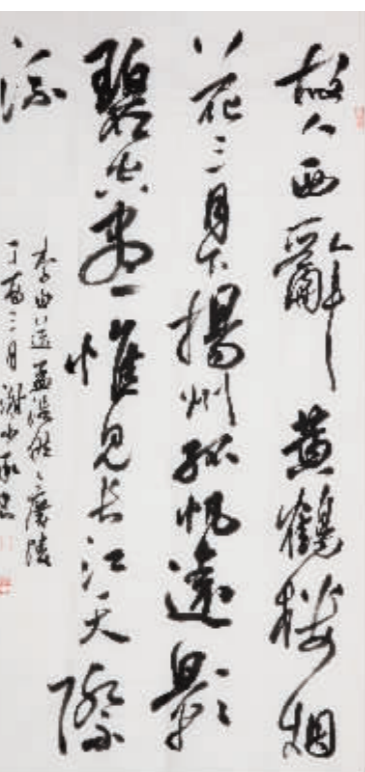 故人西辭黄鶴樓烟
花三月下揚州孤帆遠影
碧空盡惟見長江天際
流
李白送孟浩然之廣陵
丁酉三月謝